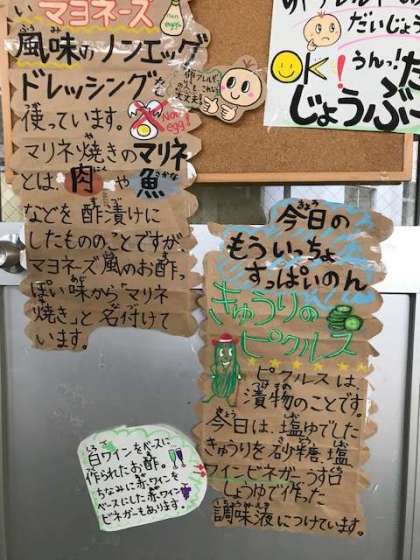 い マヨネーズ
風味のノンエッグ
ドレッシングを
使っています。
Non egg!
マリネ焼きのマリネ
とは、肉や魚
などを酢漬けに
したもののことですが、
マヨネーズ風のお酢っ
ぽい味から「マリネ
焼き」と名付けて
います。
だいじょう
OK! うんっ!だ
じょうぶー
今日の
もういっちょ
すっぱいのん
きゅうりの
ピクルス
ピクルスは、
漬物のことです。
今日は、塩ゆでした
きゅうりを砂糖、塩、
ワインビネガー、うす口
しょうゆで作った
調味液につけています。
白ワインをベースに
作られたお酢。
ちなみに赤ワインを
ベースにした赤ワイン
ビネガーもあります。